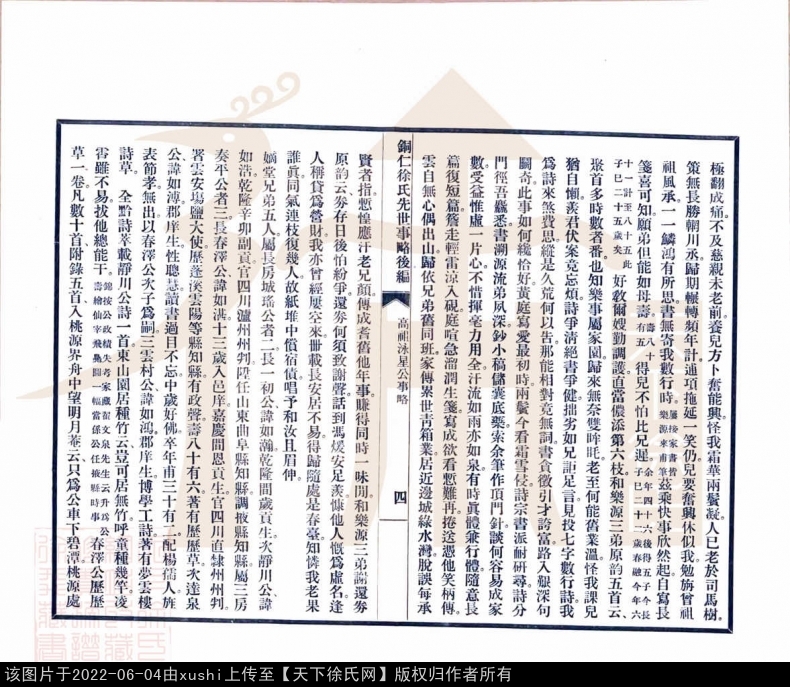 極翻成痛不及慈親未老前養兒方卜奮能興怪我霜華兩鬢凝人已老於司馬樹
策無長勝輞川承歸期輾轉頻年計逋項拖延一笑仍兒要奮興休似我勉旃曾祖
祖風承一一鱗鴻有所思書無寄我數行時藩接家書皆樂源來甫筆茲乘快事欣然起自寫長
箋喜可知願弟但能如母壽壽八十有五得兒不怕比兄遲余年四十六後得五子今長子已二十二歲春融今年六
十一計至八十五此子已二十五歲矣好教爾嫂勤調護直當儂添第六枝和樂源三弟原韵五首云
聚首多時數者番也知樂事屬家園歸來無奈雙眸眊老至何能舊業溫怪我課兒
猶自懶羨君伏案竟忘煩詩爭清絕書爭健拙劣如兄詎足言見投七字數行詩我
為詩來煞費思縱是久荒何以苦那能相對竟無詞書貪徵引才誇富路入艱深句
鬬奇此事如何纔恰好黃庭寫愛最初時兩鬢今看霜雪侵詩宗書派耐研尋詩分
門徑吾纚悉書溯源流弟夙深鈔小稿儲囊底槩索余筆作頂門針談何容易成家
數受益惟慮一片心不惜揮毫力用全汗流如雨亦如泉有時真體兼行體隨意長
篇復短篇簷走輕雷涼入硯庭喧急溜潤生箋寫成欲看慙難再捲送憑他笑柄傳
雲自無心偶出山歸依兄弟舊同班家傳累世青箱業居近邊城綠水灣脫誤每承
銅仁徐氏先世事略後編
高祖泳星公事略
四
賢者指愸惶應汗老兄顏傳成耆舊他年事賺得同時一味閒和樂源三弟謝券
原韵云券存日後怕紛爭還券何須致謝聲話到馮煖安足羡慷他人慨為虛名逢
人稱貸為營財我亦曾經屢空來冊載長安居不易得歸隨處是春臺知憐我老果
誰眞同氣連枝復幾人故紙堆中償宿債唱予和汝且眉伸
嫡堂兄弟五人屬長房城瑤公者二長一初公諱如瀚乾隆間歲貢生次靜川公諱
如浩乾隆辛卯副貢官四川瀘州州判陞任山東曲阜縣知縣調掖縣知縣屬三房
奏平公者三長春澤公諱如澍十三歲入邑庠嘉慶間恩貢生官四川直隸州州判
署雲安場鹽大使歷蓬溪雲陽等縣知縣有政聲壽八十有六著有歷歷草次達泉
公諱如溥郡庠生性聰慧讀書過目不忘中歲好佛卒年甫三十有子配楊孺人旌
表節孝無出以春澤公次子為嗣三雲村公諱如鴻郡庠生博學工詩著有夢雲樓
詩草 全黔詩萃載靜川公詩一首東山園居種竹云豈可居無竹呼童種幾竿凌
霄雖不易拔他總能干錦按公政績失考家藏翟文泉先生云升為公壽繪仙宰飛鳧圖一幅當係公任掖縣時事春澤公歷歷
草一卷凡數十首附錄五首入桃源界舟中望明月菴云只為公車下碧潭桃源處
该图片于2022-06-04由xushi上传至【天下徐氏网】版权归作者所有